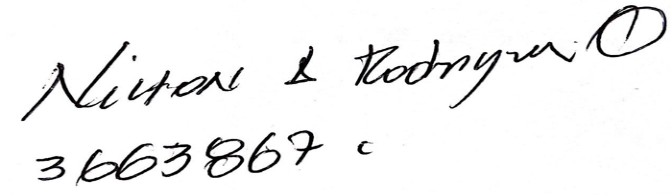 Nilton & Rodriguez
3663867 c